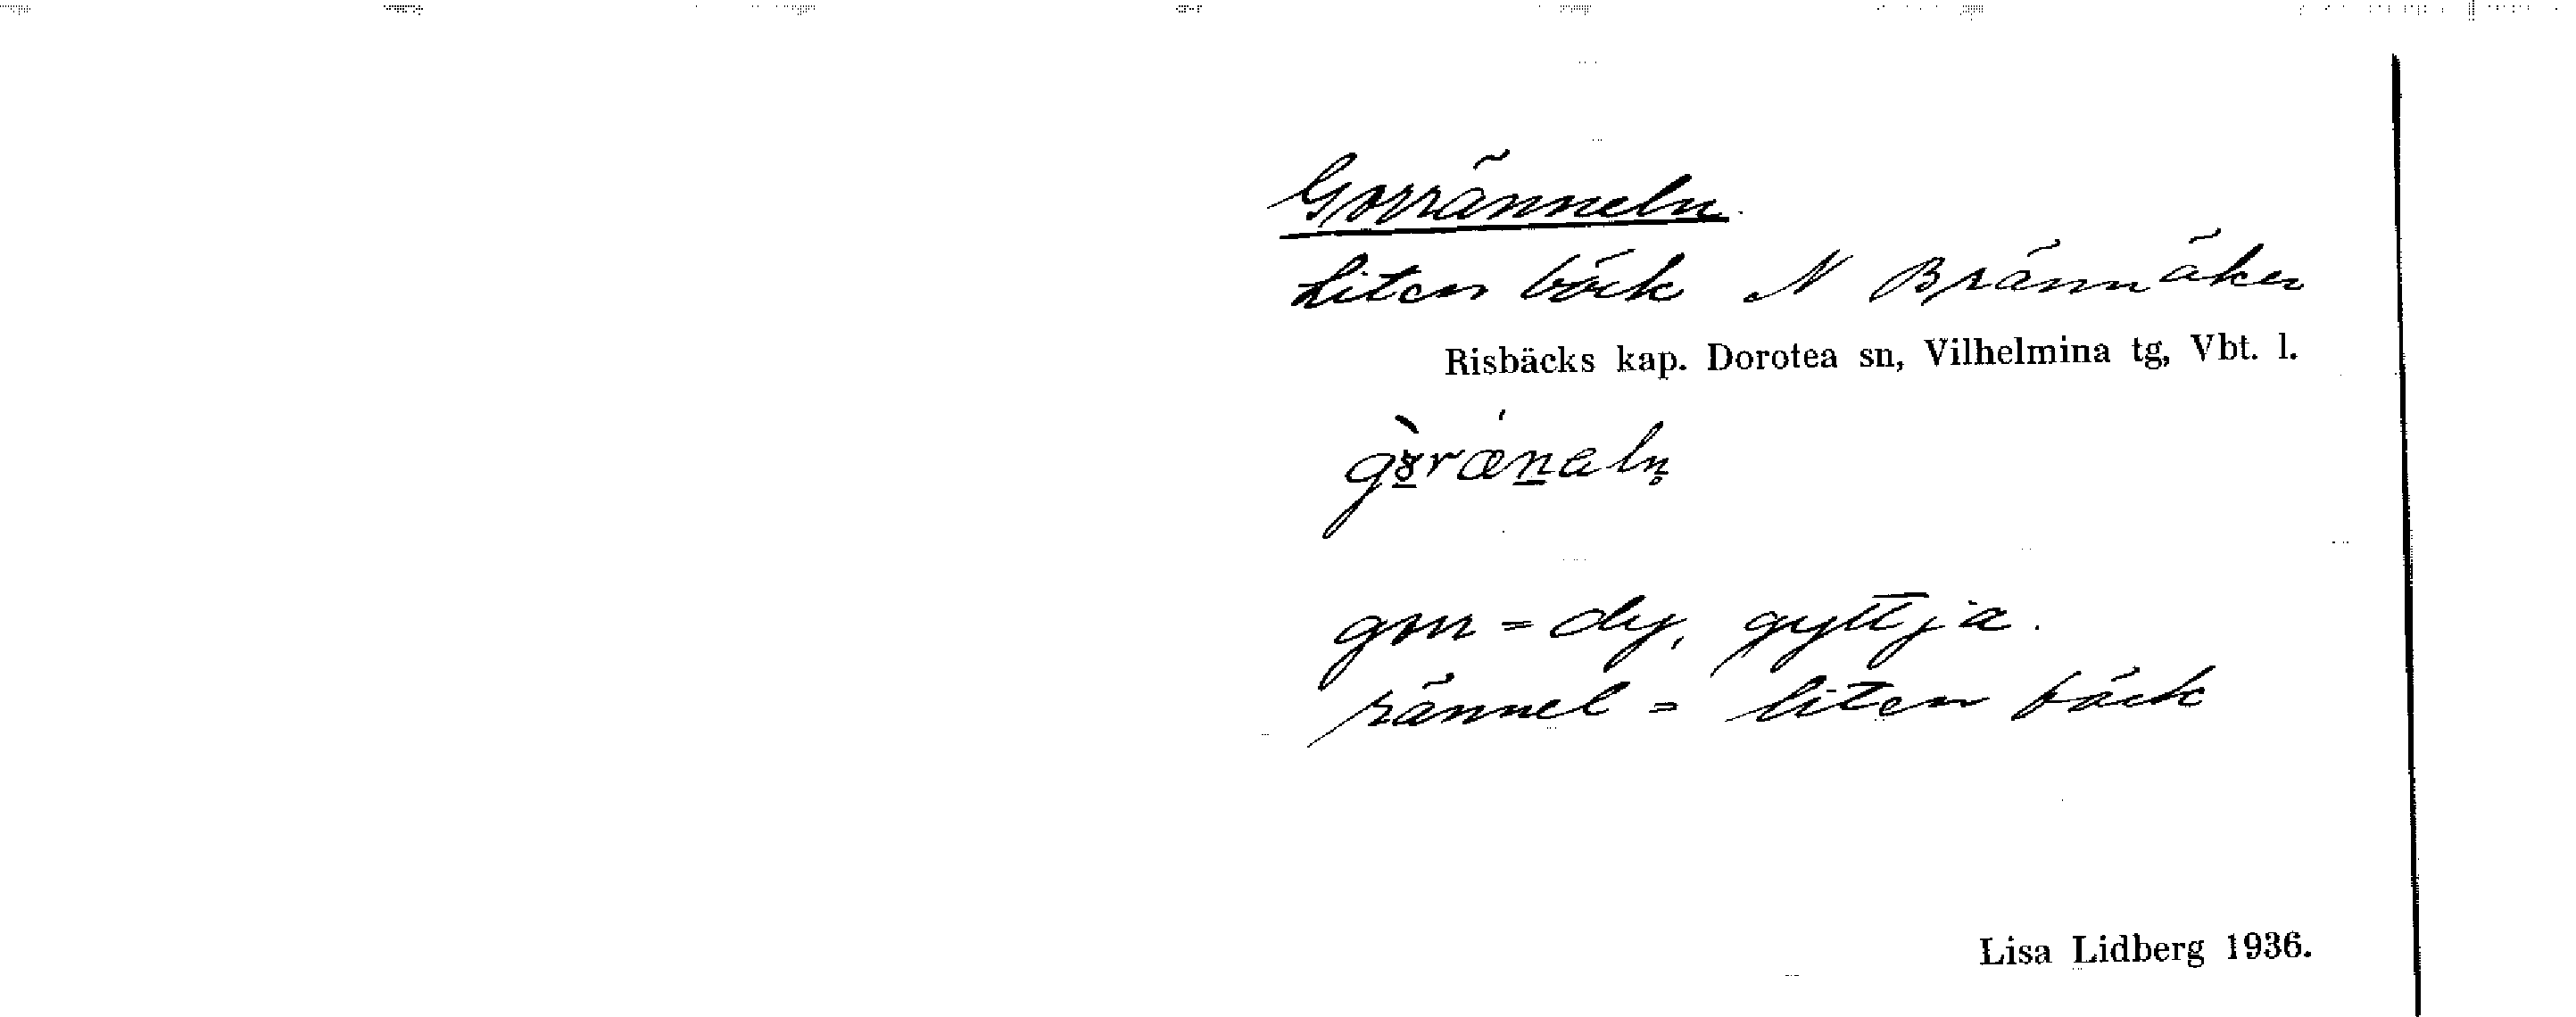 Gorränneln.
Liten bäck N Brännåker
Risbäcks kap. Dorotea sn, Vilhelmina tg, Vbt. l.
gor = dy, gyttja.
rännel = liten bäck
Lisa Lidberg 1936.